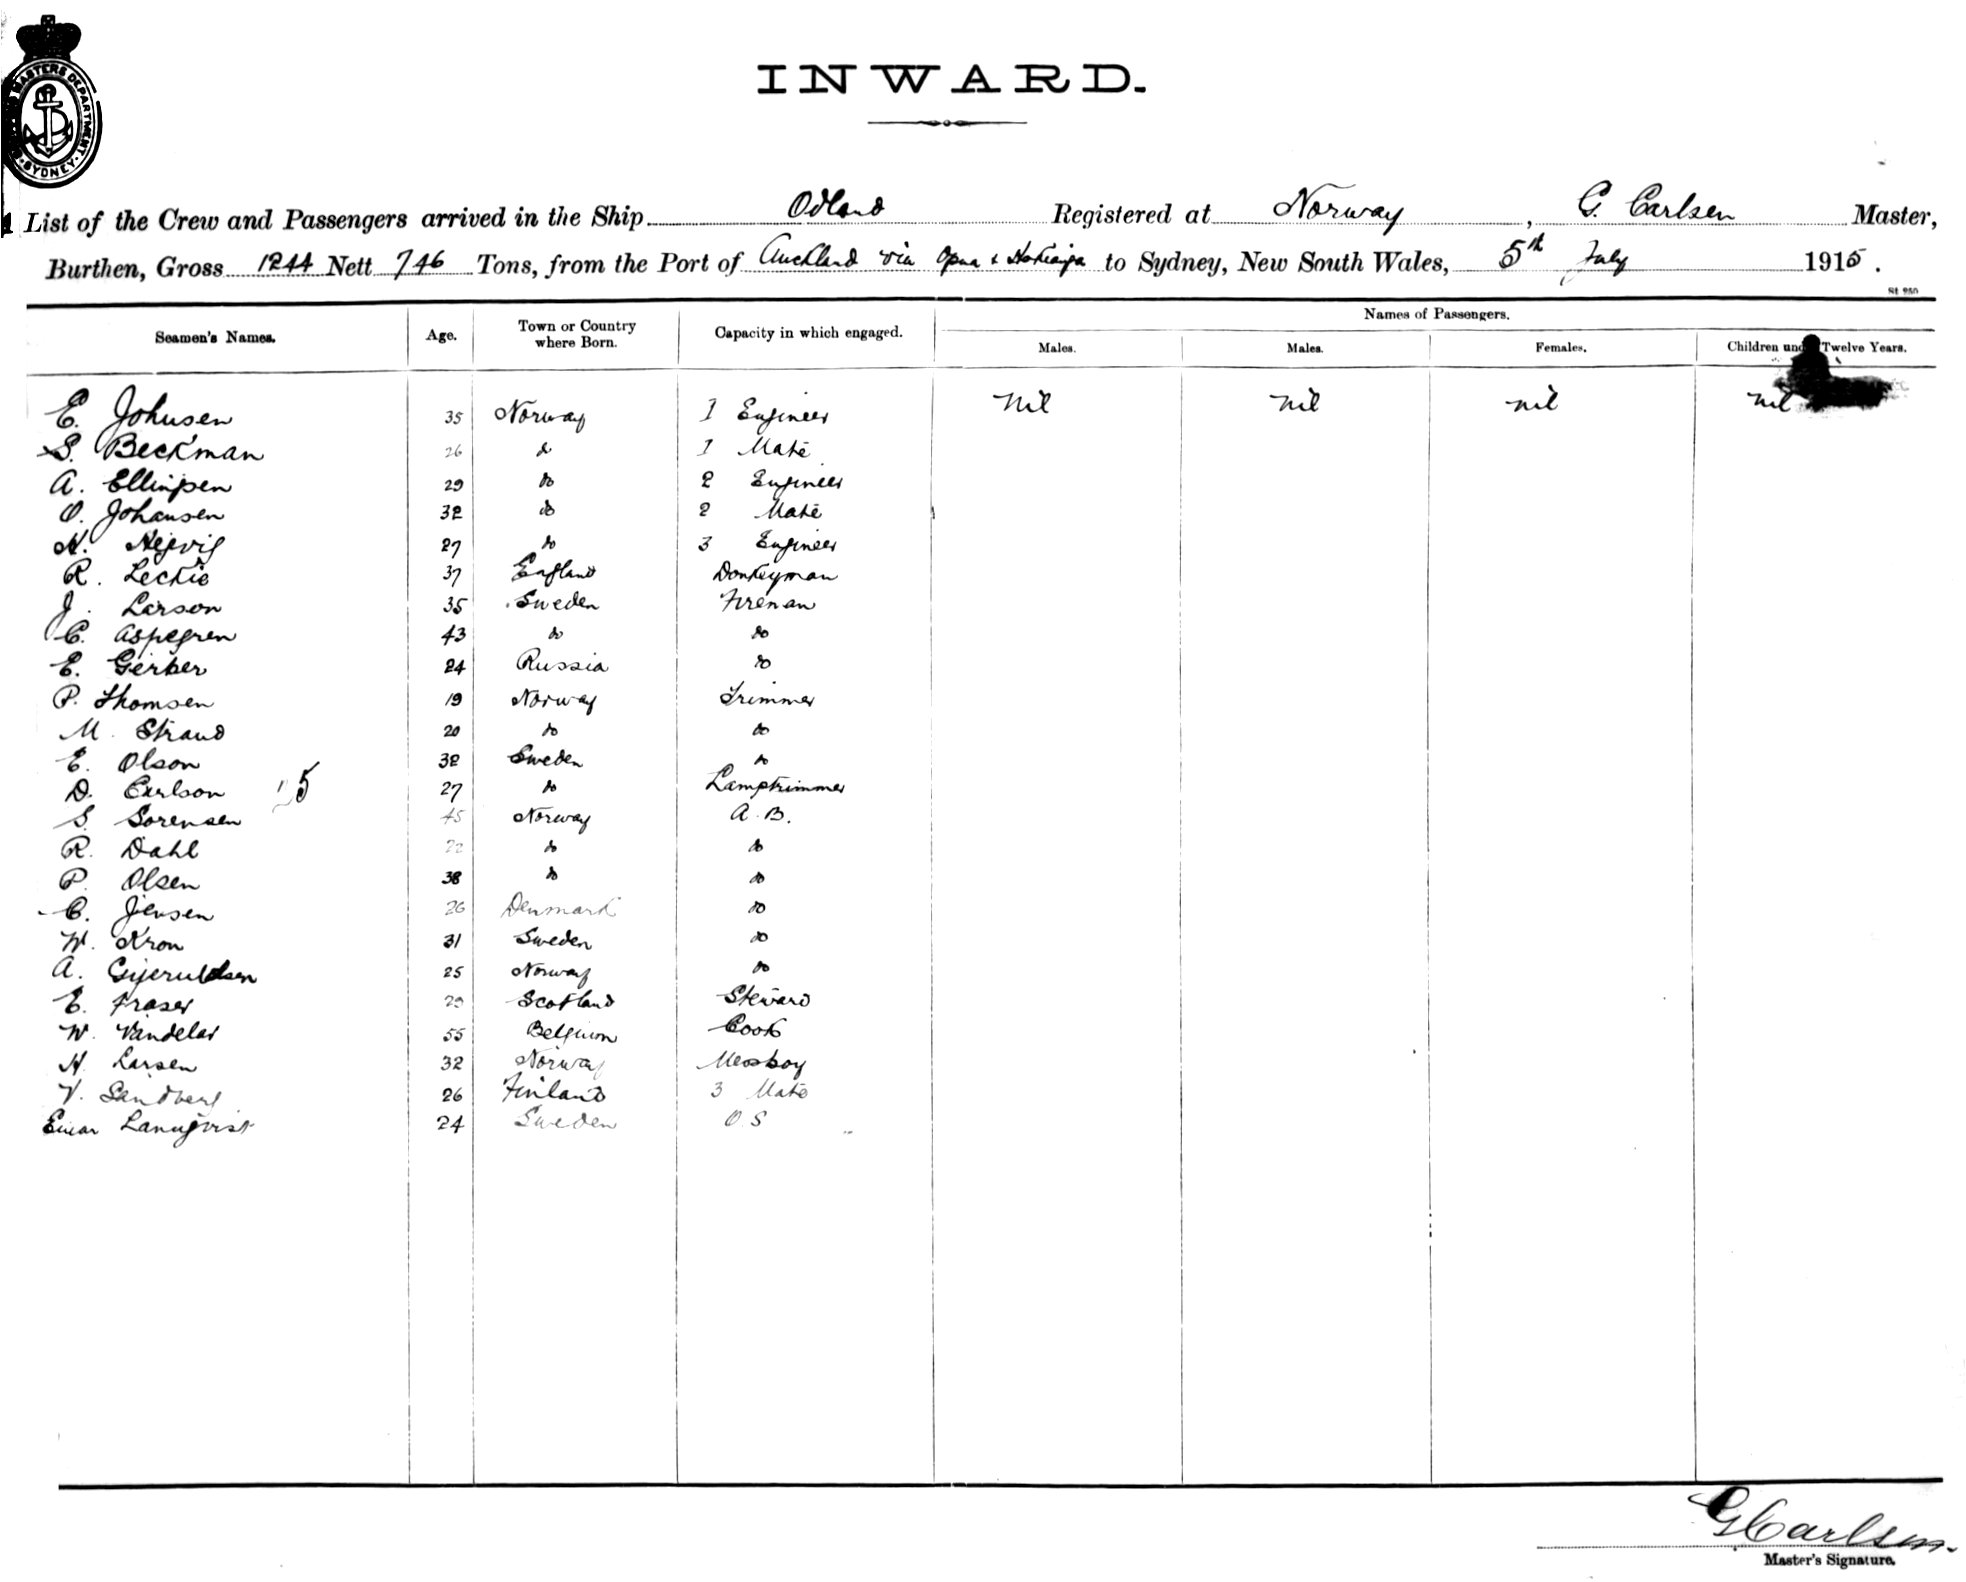 MASTERS DEPARTMENT
SYDNEY
INWARD.
List of the Crew and Passengers arrived in the Ship Odland Registered at Norway, G. Carlsen Master,
Burthen, Gross 1244 Nett 746 Tons, from the Port of Auckland via Opua & Hokianga to Sydney, New South Wales, 5th July 1915.
Seamen's Names. Age. Town or Country where Born. Capacity in which engaged. Names of Passengers.
Males. Males. Females. Children Twelve Years.
E. Johnsen 35 Norway 1 Engineer Nil nil nil nil
S. Beckman 26 do 1 Mate
A. Ellingsen 29 do 2 Engineer
O. Johansen 32 do 2 Mate
27 do 3 Engineer
R. Leckie 37 England Donkeyman
J. Larson 35 Sweden Fireman
C. Aspegren 43 do do
E. Gerber 24 Russia do
P. Thomsen 19 Norway Trimmer
M. Strand 20 do do
E. Olson 32 Sweden do
D. Carlson 25 27 do Lamptrimmer
S. Sorensen 45 Norway A.B.
R. Dahl 22 do do
P. Olsen 38 do do
C. Jensen 26 Denmark do
W. Kron 31 Sweden do
A. 25 Norway do
E. Fraser 29 Scotland Steward
W. Vandelar 55 Belgium Cook
H. Larsen 32 Norway Messboy
V. Sandberg 26 Finland 3 Mate
Einar Lannqvist 24 Sweden O.S
G Carlsen.
Master's Signature.